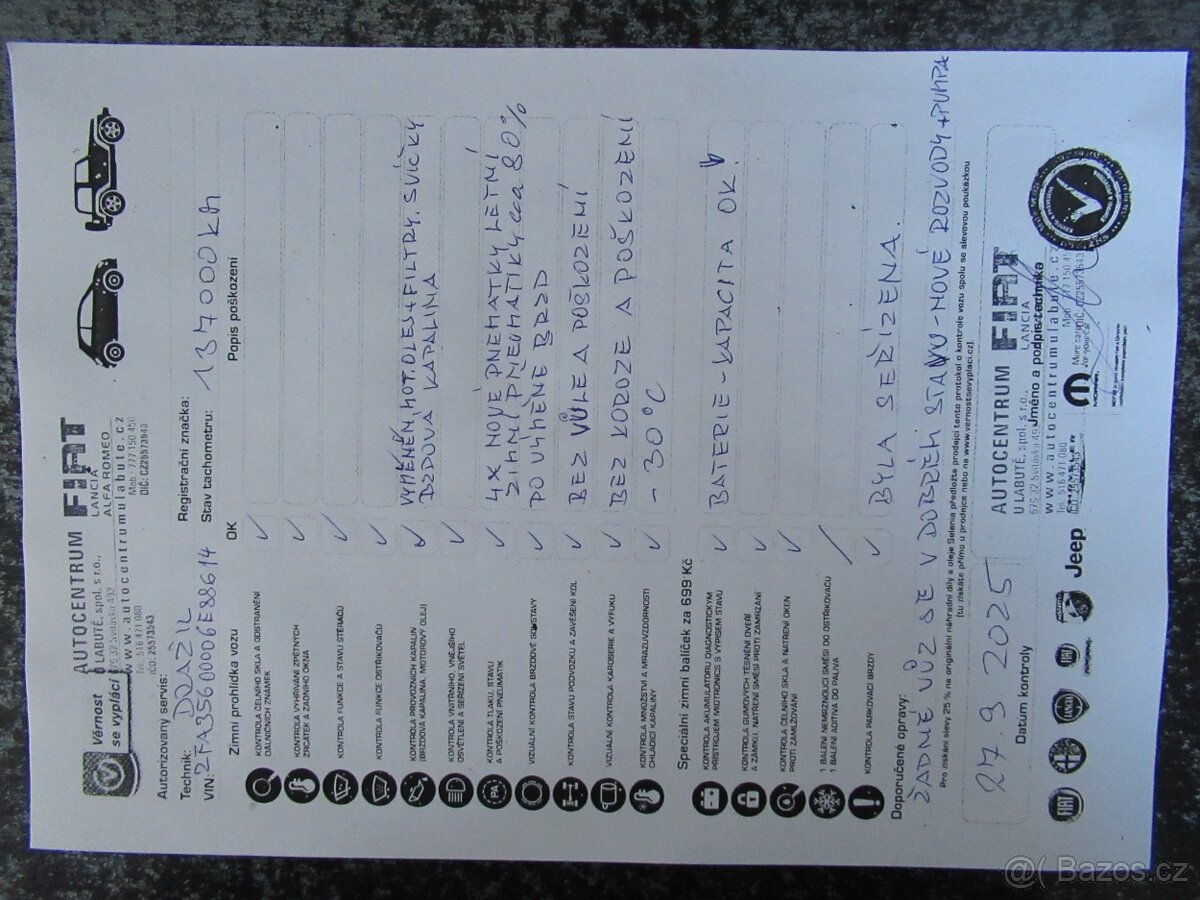 Věrnost
se vyplácí
AUTOCENTRUM FIAT
U LABUTĚ, spol. s r.o.,
LANCIA
679 32 Svitávka 492
ALFA ROMEO
www.autocentrumulabute.cz
Tel.: 516 471 080
Mob.: 777 150 451
IČO: 25573543
DIČ: CZ25573543
Autorizovaný servis:
Technik: DOAŽIL
Registrační značka:
VIN: ZFA35600006E88614
Stav tachometru: 137000 km
Zimní prohlídka vozu
OK
Popis poškození
KONTROLA ČELNÍHO SKLA A ODSTRANĚNÍ
DÁLNIČNÍCH ZNÁMEK
✓
KONTROLA VYHŘÍVÁNÍ ZPĚTNÝCH
ZRCÁTEK A ZADNÍHO OKNA
✓
KONTROLA FUNKCE A STAVU STĚRAČŮ
✓
KONTROLA FUNKCE OSTŘIKOVAČŮ
✓
KONTROLA PROVOZNÍCH KAPALIN
(BRZDOVÁ KAPALINA, MOTOROVÝ OLEJ)
✓
VYMĚNĚN MOT. OLEJ + FILTRY, SVÍČKY
BZDOVÁ KAPALINA
KONTROLA VNITŘNÍHO A VNĚJŠÍHO
OSVĚTLENÍ A SEŘÍZENÍ SVĚTEL
✓
KONTROLA TLAKU, STAVU
A POŠKOZENÍ PNEUMATIK
✓
4X NOVÉ PNEMATKY LETNÍ
ZIMNÍ PNEOMATIKY cca 80%
VIZUÁLNÍ KONTROLA BRZDOVÉ SOUSTAVY
✓
PO VÝMĚNĚ BRZD
KONTROLA STAVU PODVOZKU A ZAVĚŠENÍ KOL
✓
BEZ VŮLE A POŠKOZEMÍ
VIZUÁLNÍ KONTROLA KAROSERIE A VÝFUKU
✓
BEZ KOROZE A POŠKOZENÍ
KONTROLA MNOŽSTVÍ A MRAZUVZDORNOSTI
CHLADÍCÍ KAPALINY
✓
-30°C
Speciální zimní balíček za 699 Kč
KONTROLA AKUMULÁTORU DIAGNOSTICKÝM
PŘÍSTROJEM MIDTRONICS S VÝPISEM STAVU
✓
BATERIE - KAPACITA OK
KONTROLA GUMOVÝCH TĚSNĚNÍ DVEŘÍ
A ZÁMKU, NATŘENÍ SMĚSÍ PROTI ZAMRZÁNÍ
✓
KONTROLA ČELNÍHO SKLA A NATŘENÍ OKEN
PROTI ZAMLŽOVÁNÍ
✓
1 BALENÍ NEMRZNOUCÍ SMĚSI DO OSTŘIKOVAČŮ
1 BALENÍ ADITIVA DO PALIVA
/
KONTROLA PARKOVACÍ BRZDY
✓
BYLA SEŘÍZENA.
Doporučené opravy:
ŽÁDNÉ VŮZ SE V DOBRÉM STAVU - NOVÉ ROZVODY + PUMPA
Pro získání slevy 25 % na originální náhradní díly a oleje Selenia předložte prodejci tento protokol o kontrole vozu spolu se slevovou poukázkou
(tu získáte přímo u prodejce nebo na www.vernostsevyplaci.cz).
27. 9. 2025
Datum kontroly
AUTOCENTRUM FIAT
U LABUTĚ, spol. s r.o.,
LANCIA
679 32 Svitávka 492
Jméno a podpis technika
www.autocentrumulabute.cz
Tel.: 516 471 080
Mob.: 777 150 451
FIAT
FIAT
Jeep
MOPAR
More care
for your car
@( Bazos.cz